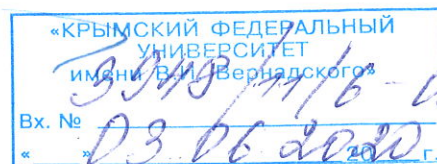 «КРЫМСКИЙ ФЕДЕРАЛЬНЫЙ
УНИВЕРСИТЕТ
имени В.И. Вернадского»
Вх. №
« 03 » 06 2020 г